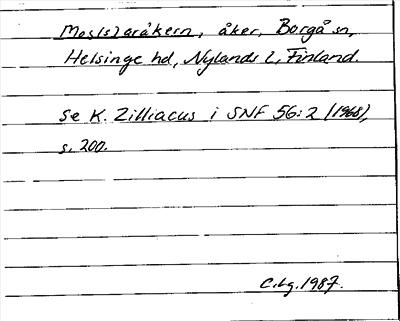 Mos[s]aråkern, åker, Borgå sn,
Helsinge hd, Nylands l, Finland.
Se K. Zilliacus i SNF 56:2 (1968),
s. 200.
C.Lg. 1987.